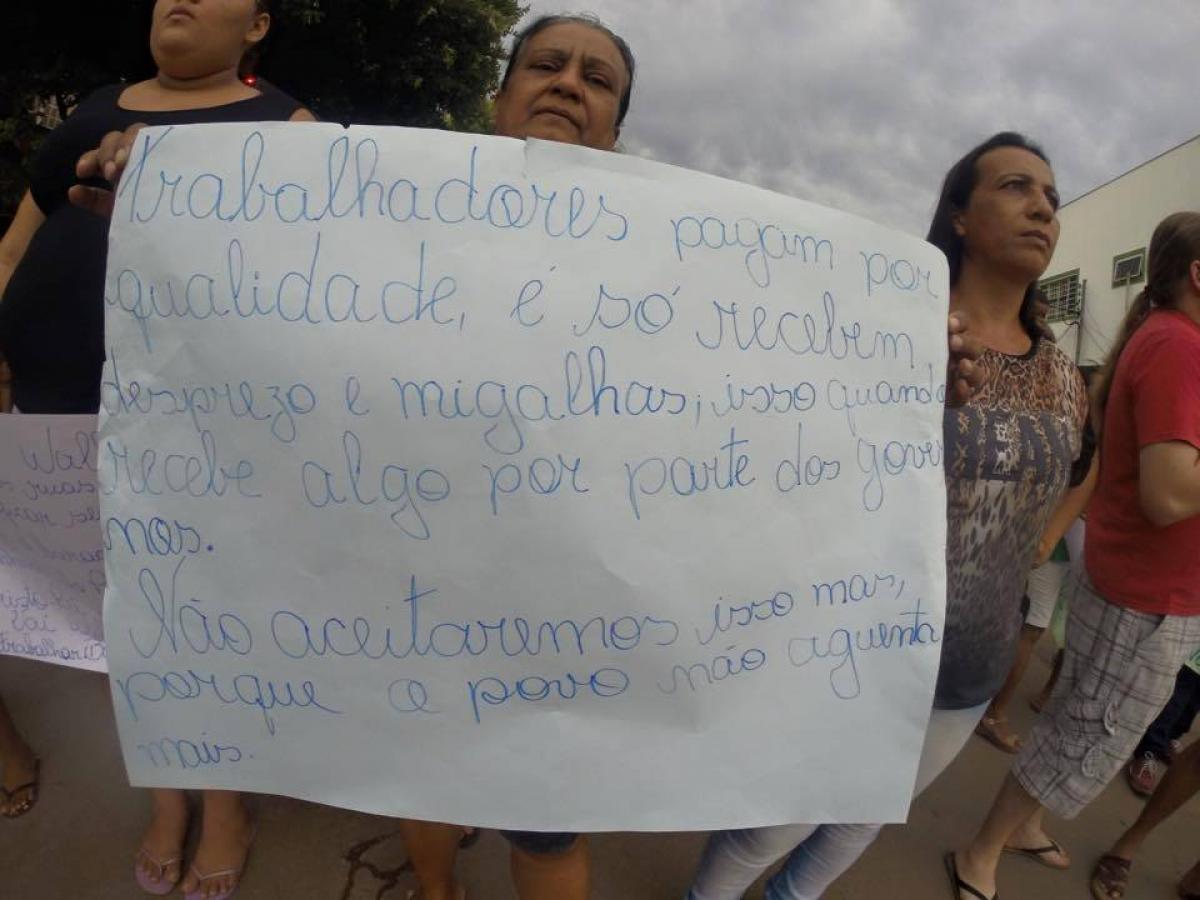 trabalhadores pagam por
qualidade, é só recebem
desprezo e migalhas, isso quando
recebe algo por parte dos gover
nos.
Não aceitaremos isso mas,
porque o povo não aguenta
mais.
Wal
ruas
trabalhar